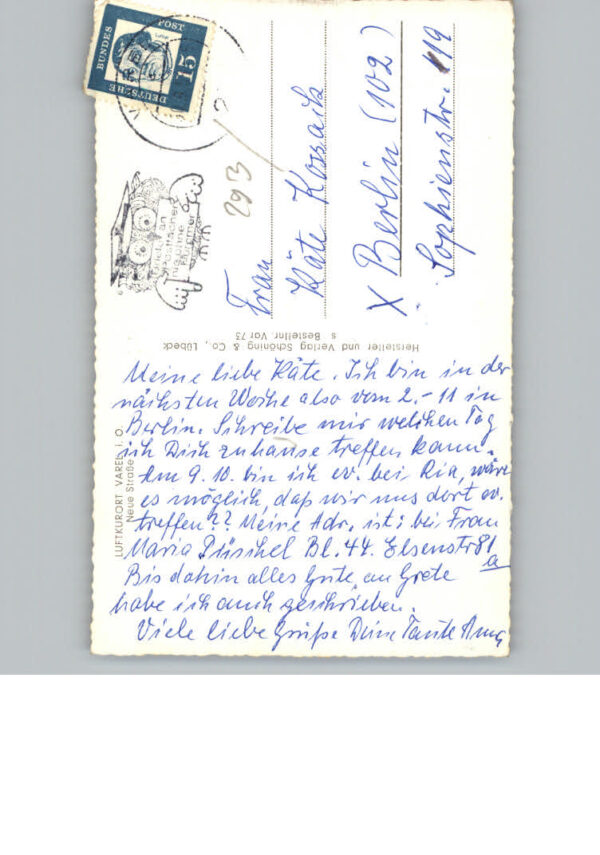 DEUTSCHE
BUNDES
POST
15
293
Frau
Käte Kossack
X Berlin (102)
Sophienstr. 119
Hersteller und Verlag Schöning & Co., Lübeck
s Bestellnr. Var 73
LUFTKURORT VAREL I. O.
Neue Straße
Meine liebe Käte. Ich bin in der
nächsten Woche also vom 2.-11 in
Berlin. Schreibe mir welchen Tag
ich Dich zuhause treffen kann.
Am 9.10. bin ich ev. bei Ria, wäre
es möglich, daß wir uns dort ev.
treffen?? Meine Adr. ist: bei Frau
Maria Püschel Bl. 44. Elsenstr 81
a
Bis dahin alles Gute, an Grete
habe ich auch geschrieben.
Viele liebe Grüße Deine Tante Anna